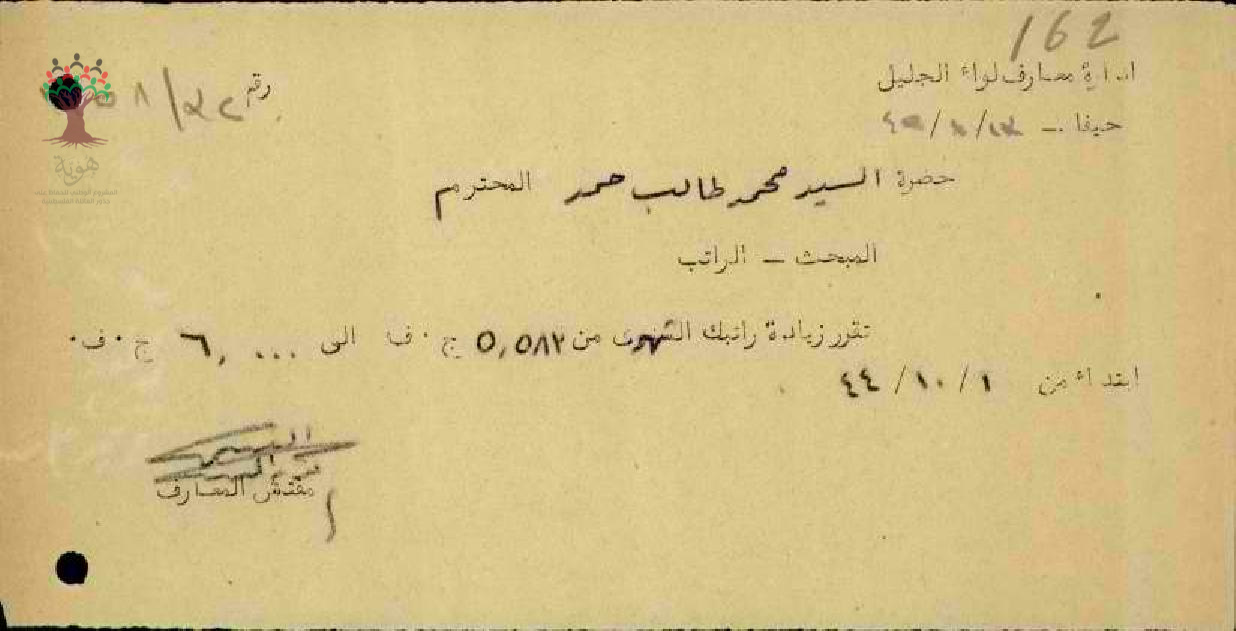 162
ادارة معارف لواء الجليل
رقم
حيفا -
حضرة السيد محمد طالب حمد المحترم
المبحث - الراتب
تقرر زيادة راتبك الشهرى من ٥,٥٨٣ ج ٠ ف الى ٦,٠٠٠ ج ٠ ف ٠
ابتداء من ٤٤/١٠/١
مفتش المعارف
هوية